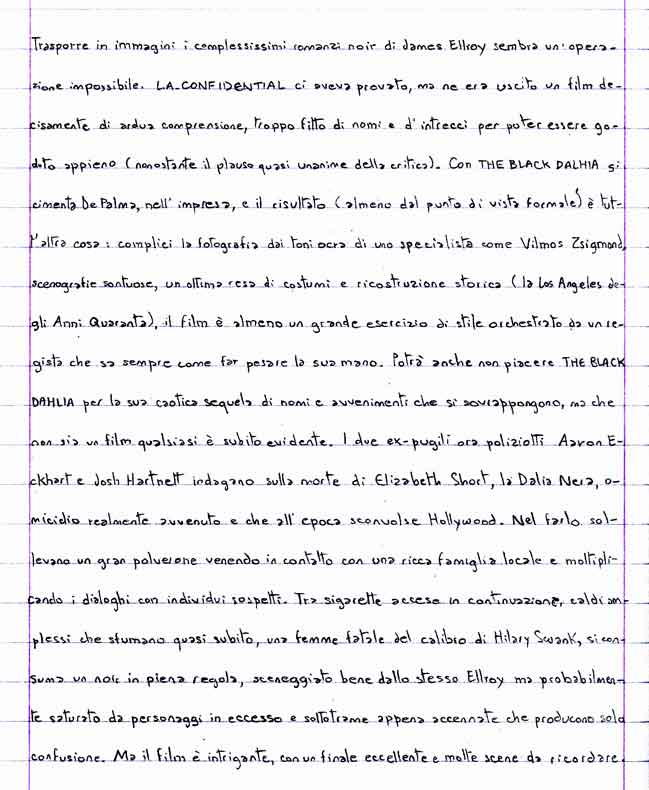 Trasporre in immagini i complessissimi romanzi noir di James Ellroy sembra un'opera-
zione impossibile. LA CONFIDENTIAL ci aveva provato, ma ne era uscito un film de-
cisamente di ardua comprensione, troppo fitto di nomi e d'intrecci per poter essere go-
duto appieno (nonostante il plauso quasi unanime della critica). Con THE BLACK DALHIA si
cimenta De Palma, nell'impresa, e il risultato (almeno dal punto di vista formale) è tut-
t'altra cosa: complici la fotografia dai toni ocra di uno specialista come Vilmos Zsigmond,
scenografie sontuose, un'ottima resa di costumi e ricostruzione storica (la Los Angeles de-
gli Anni Quaranta), il film è almeno un grande esercizio di stile orchestrato da un re-
gista che sa sempre come far pesare la sua mano. Potrà anche non piacere THE BLACK
DAHLIA per la sua caotica sequela di nomi e avvenimenti che si sovrappongono, ma che
non sia un film qualsiasi è subito evidente. I due ex-pugili ora poliziotti Aaron E-
ckhart e Josh Hartnett indagano sulla morte di Elizabeth Short, la Dalia Nera, o-
micidio realmente avvenuto e che all'epoca sconvolse Hollywood. Nel farlo sol-
levano un gran polverone venendo in contatto con una ricca famiglia locale e moltipli-
cando i dialoghi con individui sospetti. Tra sigarette accese in continuazione, caldi am-
plessi che sfumano quasi subito, una femme fatale del calibro di Hilary Swank, si con-
suma un noir in piena regola, sceneggiato bene dallo stesso Ellroy ma probabilmen-
te saturato da personaggi in eccesso e sottotrame appena accennate che producono solo
confusione. Ma il film è intrigante, con un finale eccellente e molte scene da ricordare.